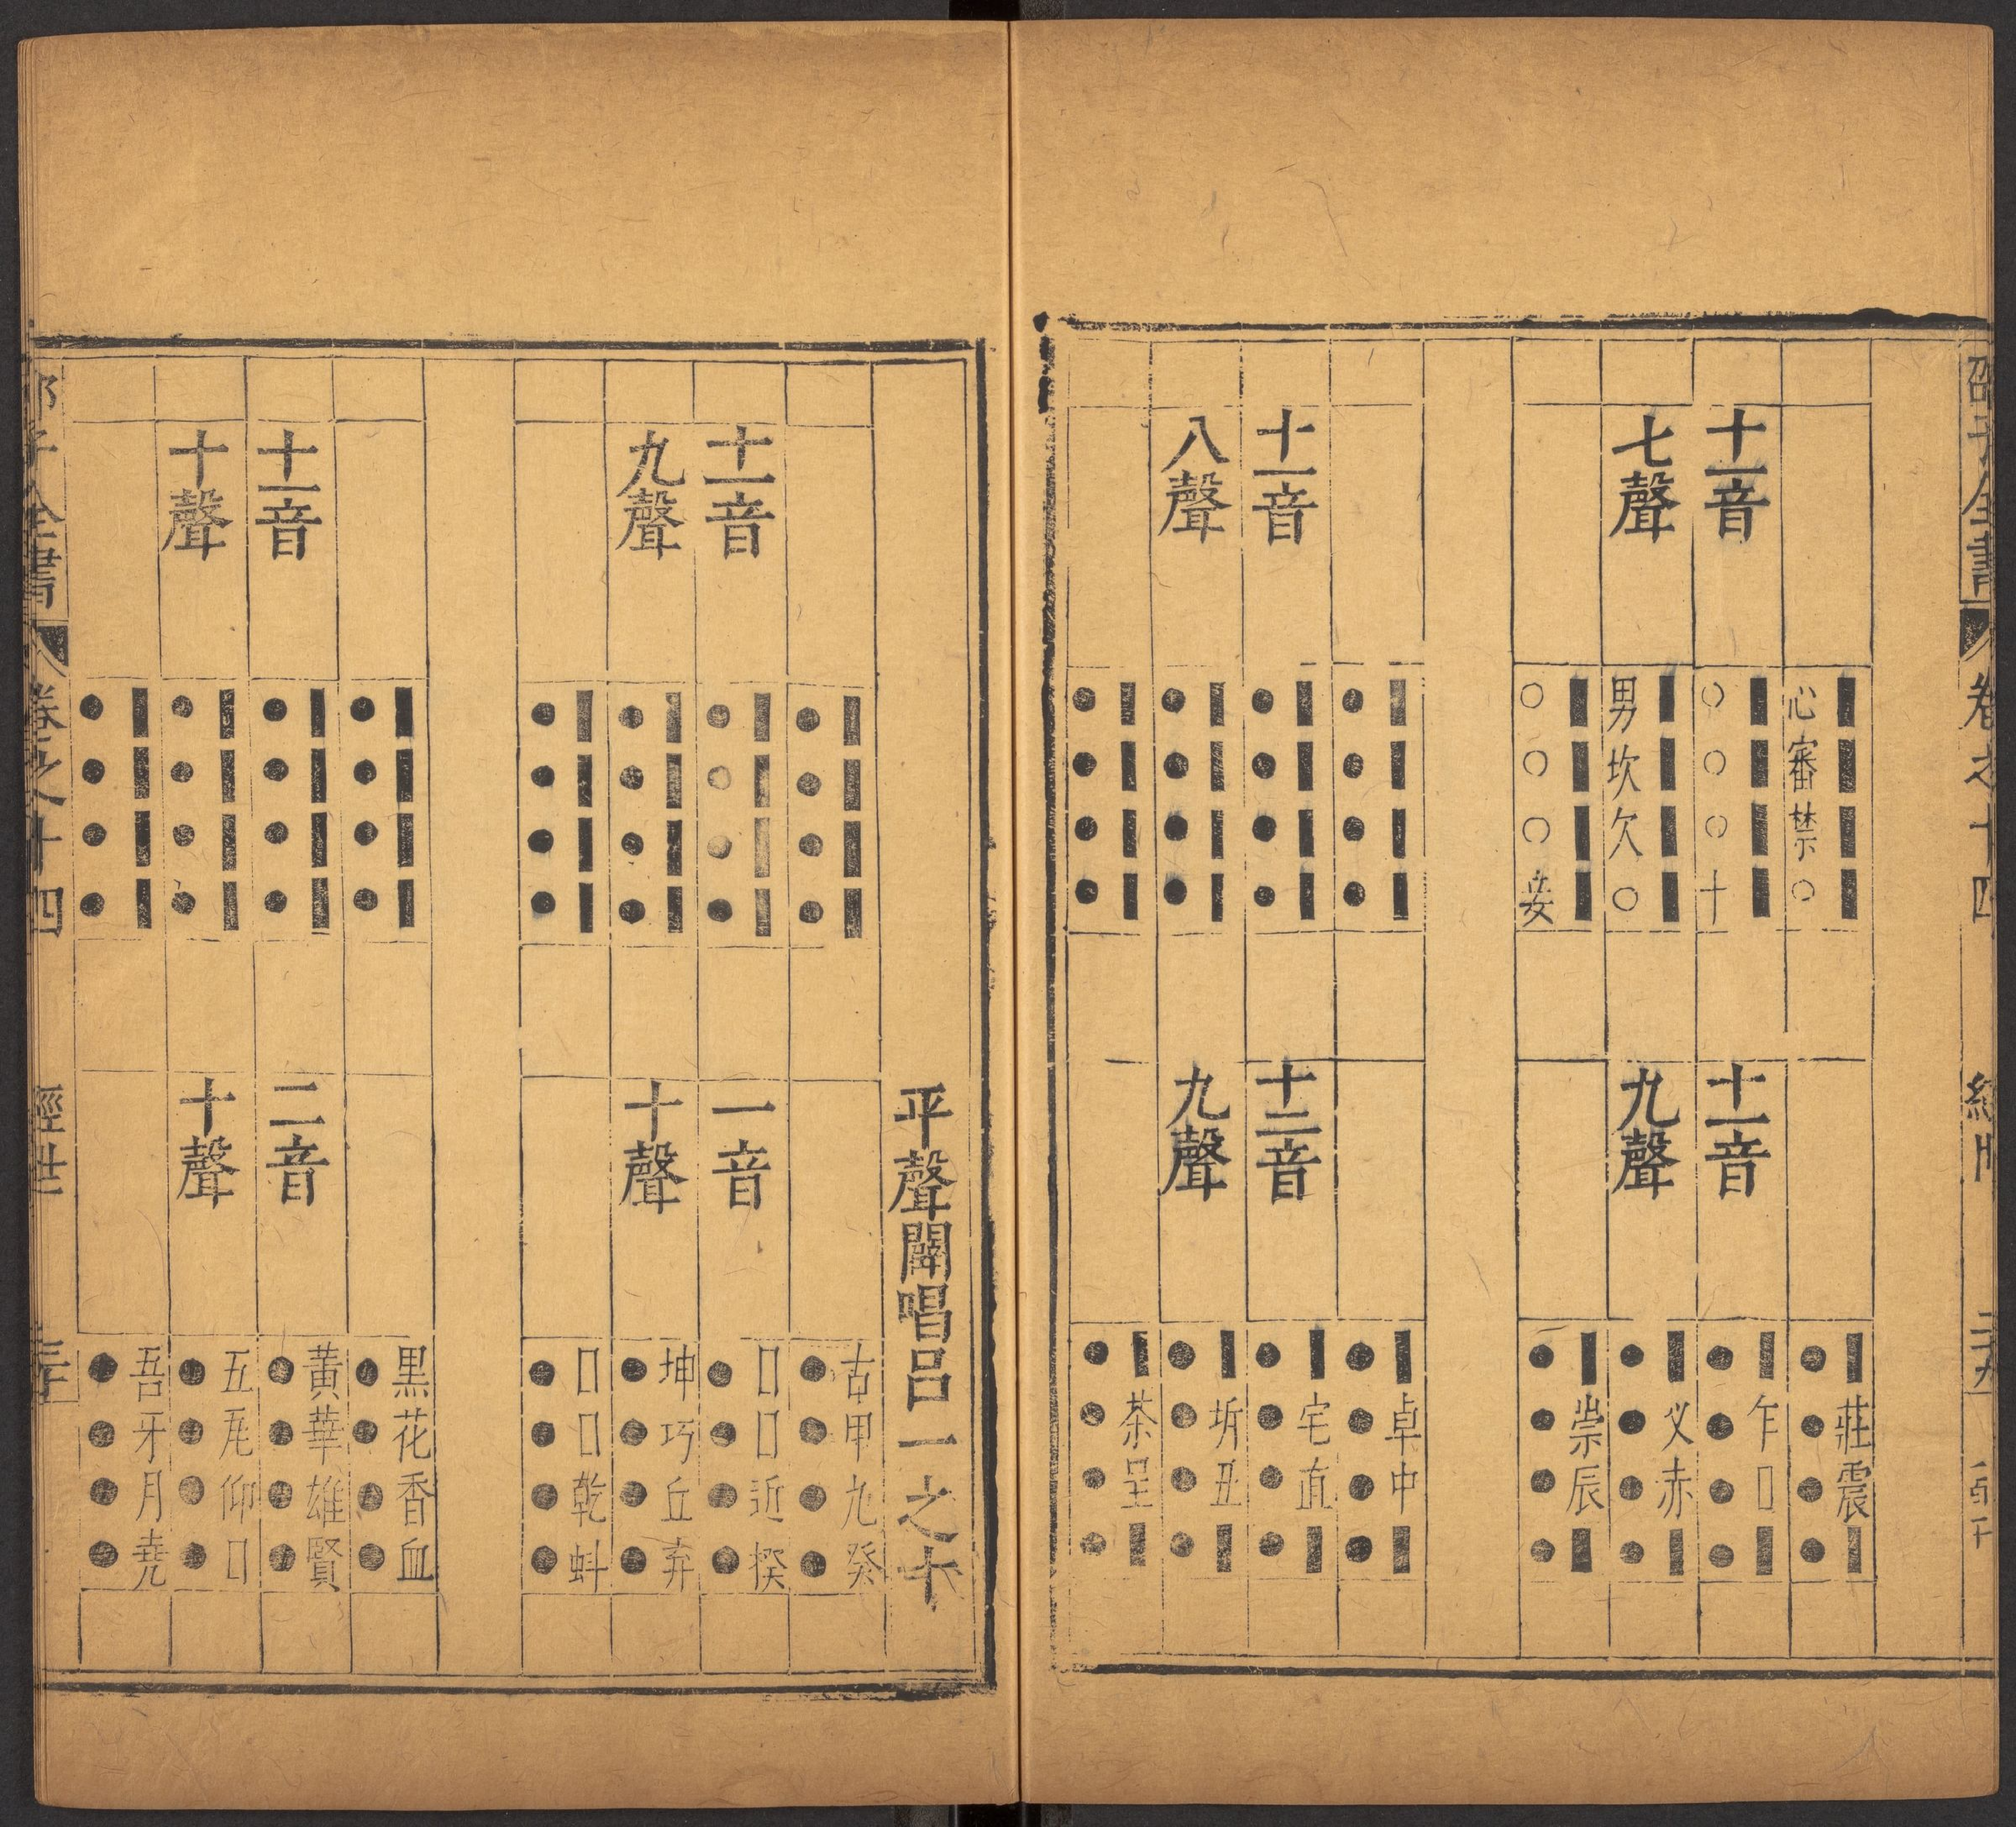 邵子全書 卷之十四
十一音
七聲
心審禁○
○○○十
男坎欠○
○○○妾
十一音
九聲
■莊震■
■乍□■
■叉赤■
■崇辰■
十一音
八聲
十二音
九聲
■卓中■
■宅直■
■坼丑■
■茶呈■
平聲闢唱呂一之十
十一音
九聲
一音
十聲
古甲九癸
□□近揆
坤巧丘弃
□□乾蚪
十一音
十聲
二音
十聲
黒花香血
黃華雄賢
五瓦仰□
吾牙月堯
子全書 卷之十四 經世